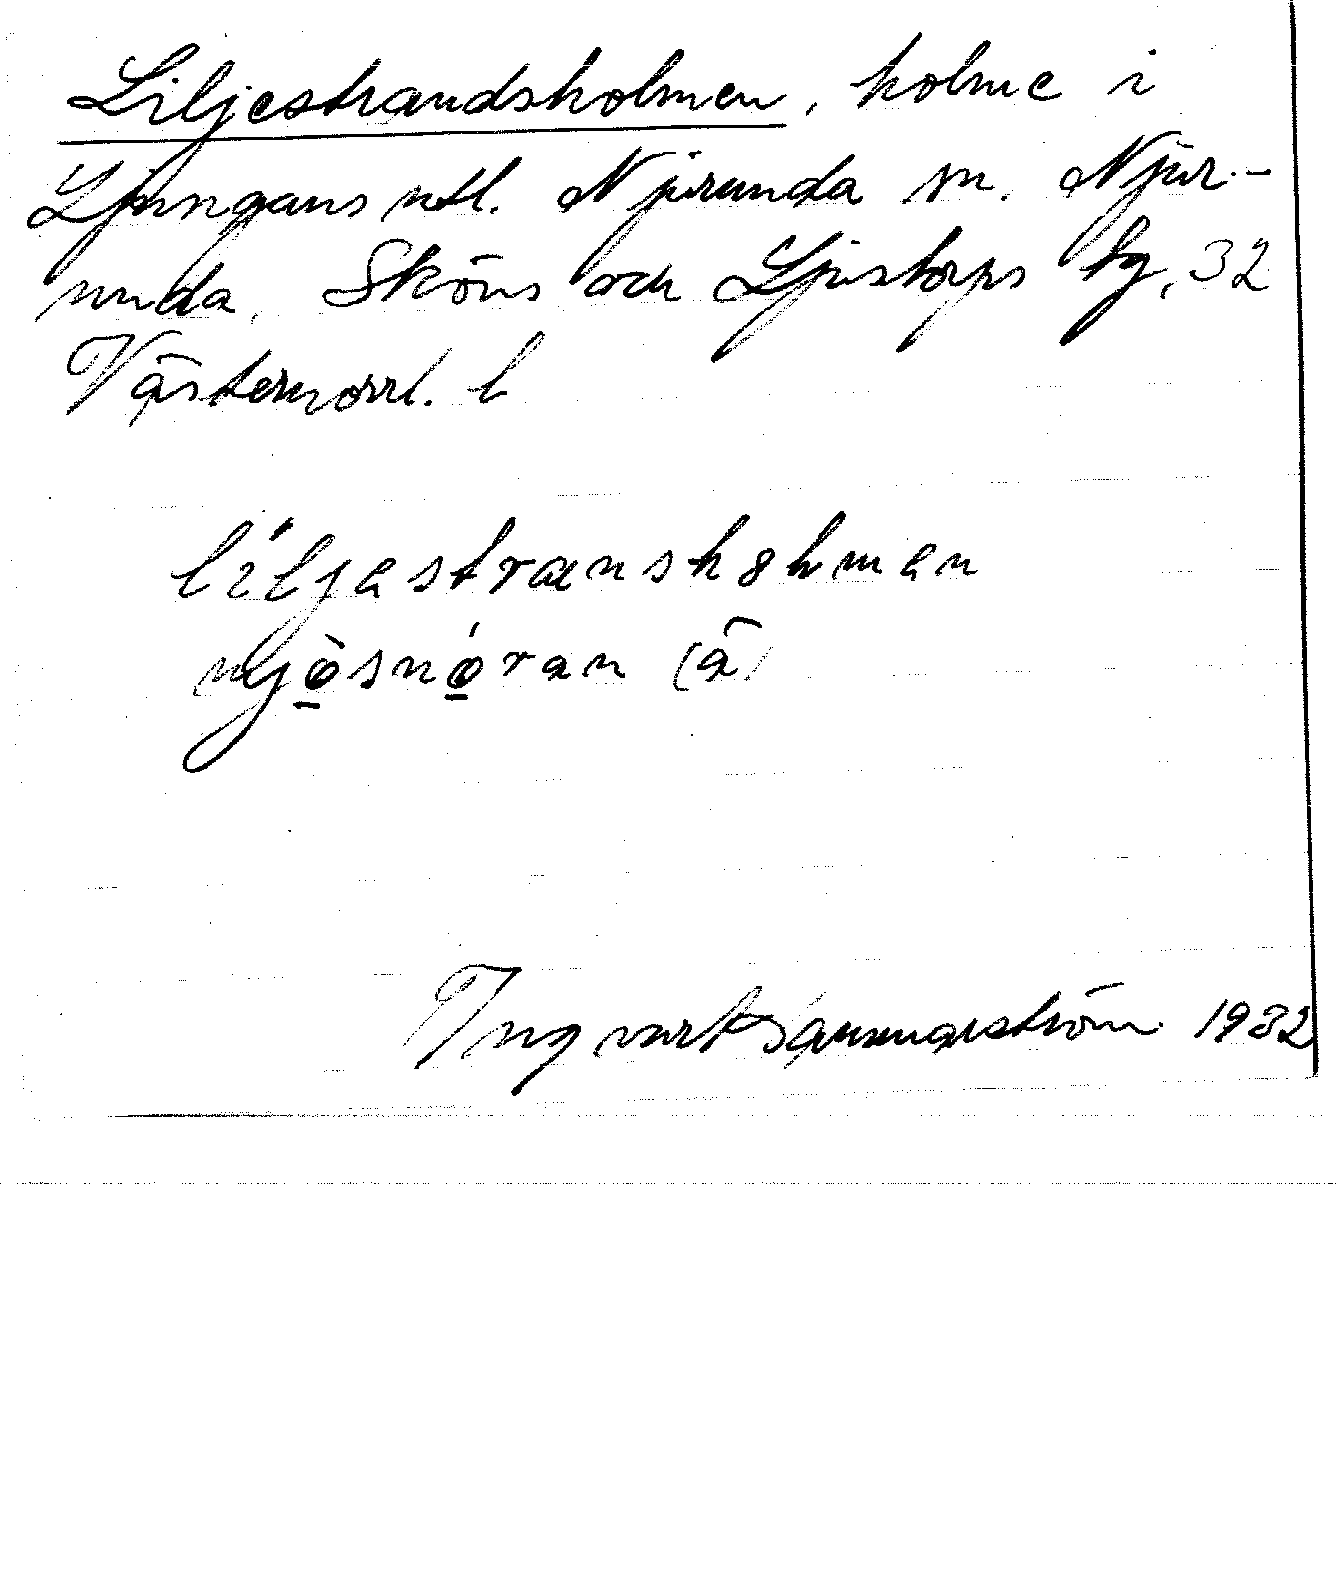 Liljestrandsholmen, holme i
Ljungans utl. Njurunda sn. Njur-
unda, Sköns och Ljustorps tg, 32
Västernorrl. l
li´ljestranshɷlmen
njo̠̊̀sno̠̊́ran (ä)
Ingvart 1932